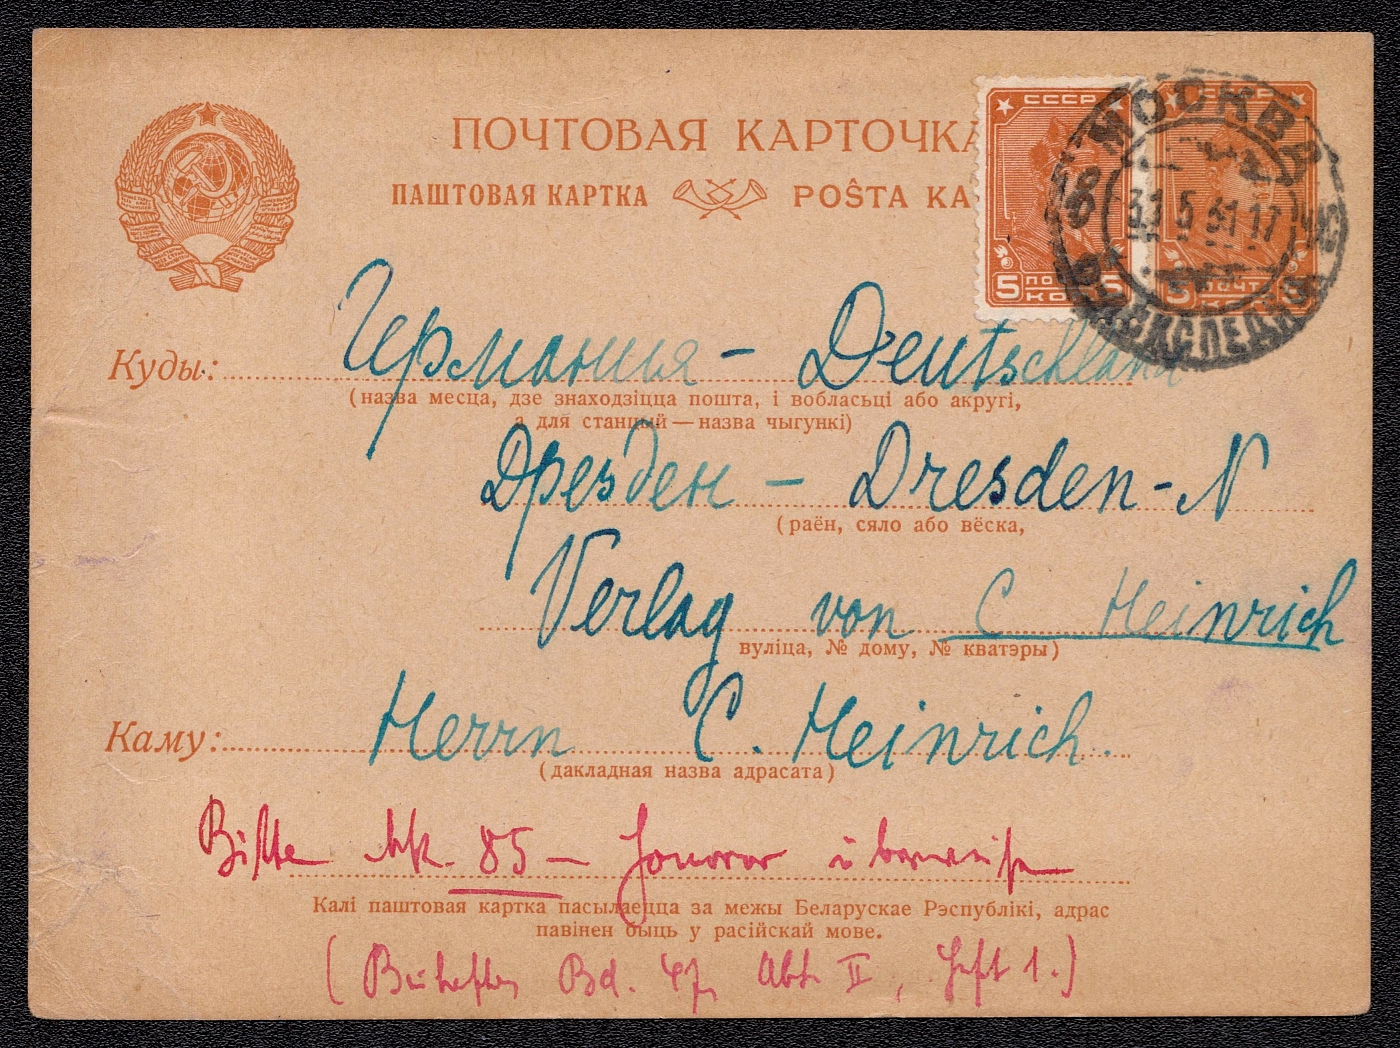 ПОЧТОВАЯ КАРТОЧКА
ПАШТОВАЯ КАРТКА POŜTA KA
СССР СССР
5 ПО КО 5
5 ПОЧТ КО
МОСКВА
31 5 31 17
ЭКСПЕДИЦ
Куды: Германия – Deutschland
(назва месца, дзе знаходзіцца пошта, і вобласьці або акругі,
а для станцый—назва чыгункі)
Дрезден – Dresden-N
(раён, сяло або вёска,
Verlag von C Heinrich
вуліца, № дому, № кватэры)
Каму: Herrn C. Heinrich.
(дакладная назва адрасата)
Bitte Mk. 85 – Honorar überweisen
Калі паштовая картка пасылаецца за межы Беларускае Рэспублікі, адрас
павінен быць у расійскай мове.
Bd. 47, Abt. II, Heft 1.)